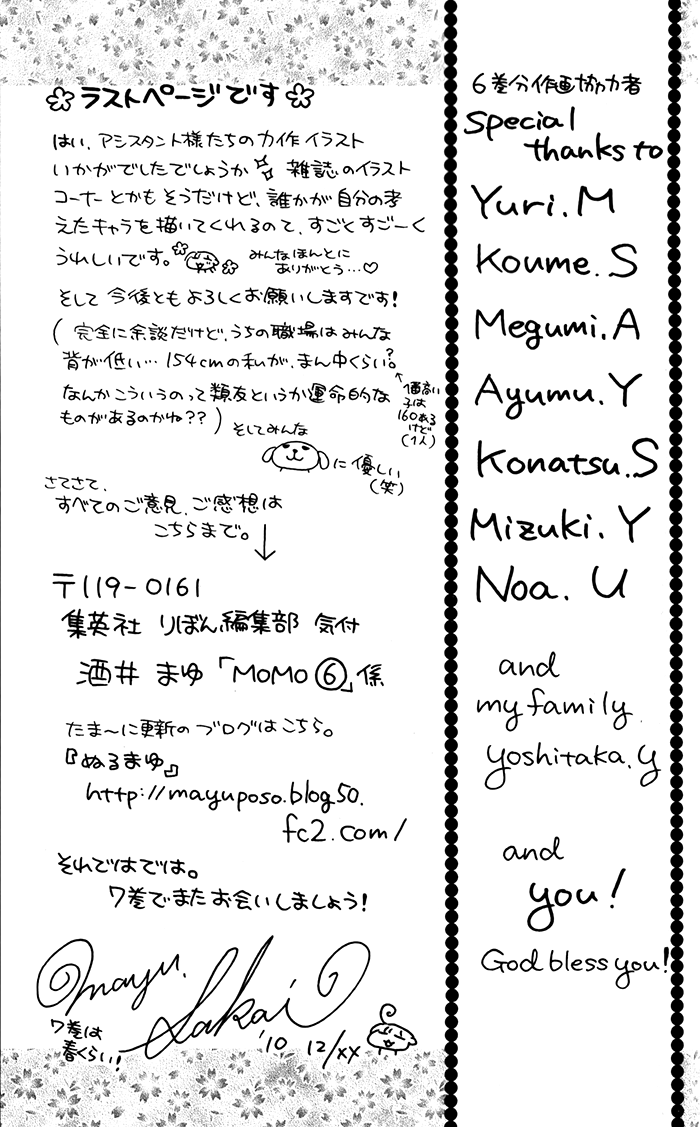 ラストページです
はい、アシスタント様たちの力作イラスト
いかがでしたでしょうか 雑誌のイラスト
コーナーとかもそうだけど、誰かが自分の考
えたキャラを描いてくれるのって、すごくすごーく
うれしいです。
みんなほんとに
ありがとう…♡
そして今後ともよろしくお願いしますです!
(完全に余談だけど、うちの職場はみんな
背が低い… 154cmの私が、まん中くらい?
なんかこういうのって類友というか運命的な
ものがあるのかね??)
←1番高い
子は
160ある
けど
(1人)
そしてみんな
に優しい
(笑)
さてさて、
すべてのご意見、ご感想は
こちらまで。↓
〒119-0161
集英社 りぼん編集部 気付
酒井 まゆ「MOMO⑥」係
たま〜に更新のブログはこちら。
『ぬるまゆ』
http://mayuposo.blog50.
fc2.com/
それではでは。
7巻でまたお会いしましょう!
mayu.
Sakai
'10 12/XX
7巻は
春くらい!
6巻分作画協力者
Special
thanks to
Yuri.M
Koume.S
Megumi.A
Ayumu.Y
Konatsu.S
Mizuki.Y
Noa.U
and
my family
Yoshitaka.Y
and
you!
God bless you!